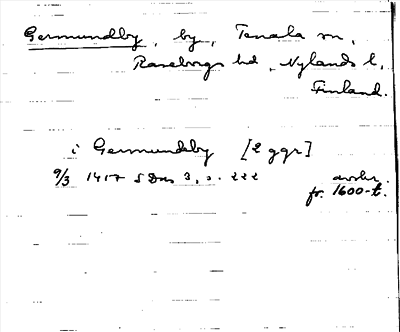 Germundby, by, Tenala sn,
Raseborgs hd, Nylands l,
Finland.
i Germundeby [2 ggr]
9/3 1417 SDns 3, s. 222 avskr.
fr. 1600-t.